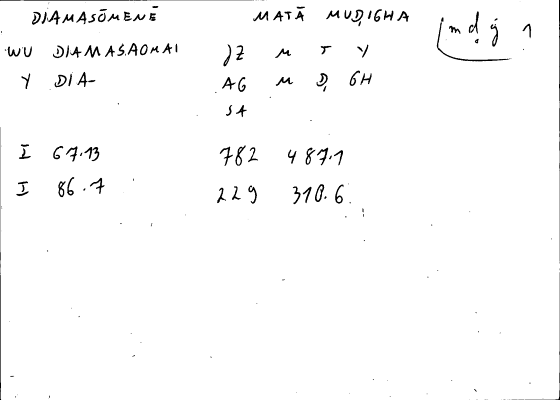 DIAMASŌMENĒ MATĀ MUḌIGHA mḍġ 1
WU DIAMASAOMAI JZ M T Y
Y DIA- AG M Ḍ GH
SA
I 67.13 782 487.1
I 86.7 229 310.6